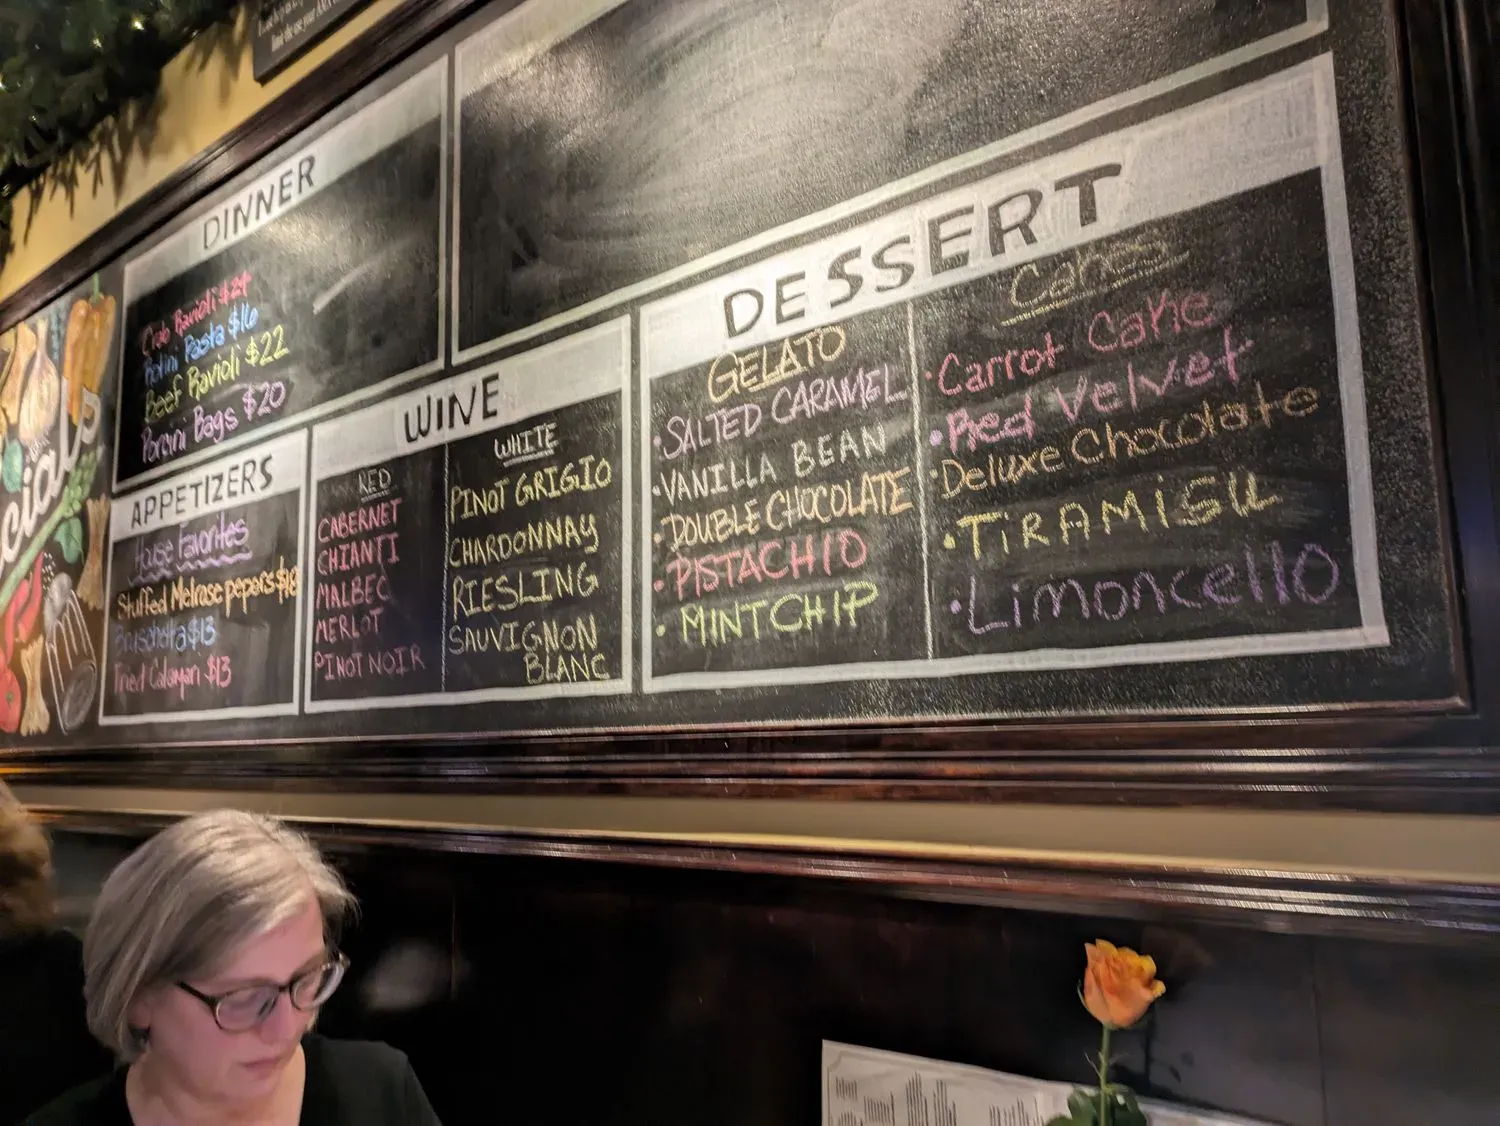 cials
DINNER
Crab Ravioli $24
Rotini Pasta $16
Beef Ravioli $22
Porcini Bags $20
APPETIZERS
House Favorites
Stuffed Melrose pepers $18
Bruschetta $13
Fried Calamari $13
WINE
RED
CABERNET
CHIANTI
MALBEC
MERLOT
PINOT NOIR
WHITE
PINOT GRIGIO
CHARDONNAY
RIESLING
SAUVIGNON
BLANC
DESSERT
GELATO
• SALTED CARAMEL
• VANILLA BEAN
• DOUBLE CHOCOLATE
• PISTACHIO
• MINT CHIP
Cakes
• Carrot Cake
• Red Velvet
• Deluxe Chocolate
• TiRAMiSU
• Limoncello